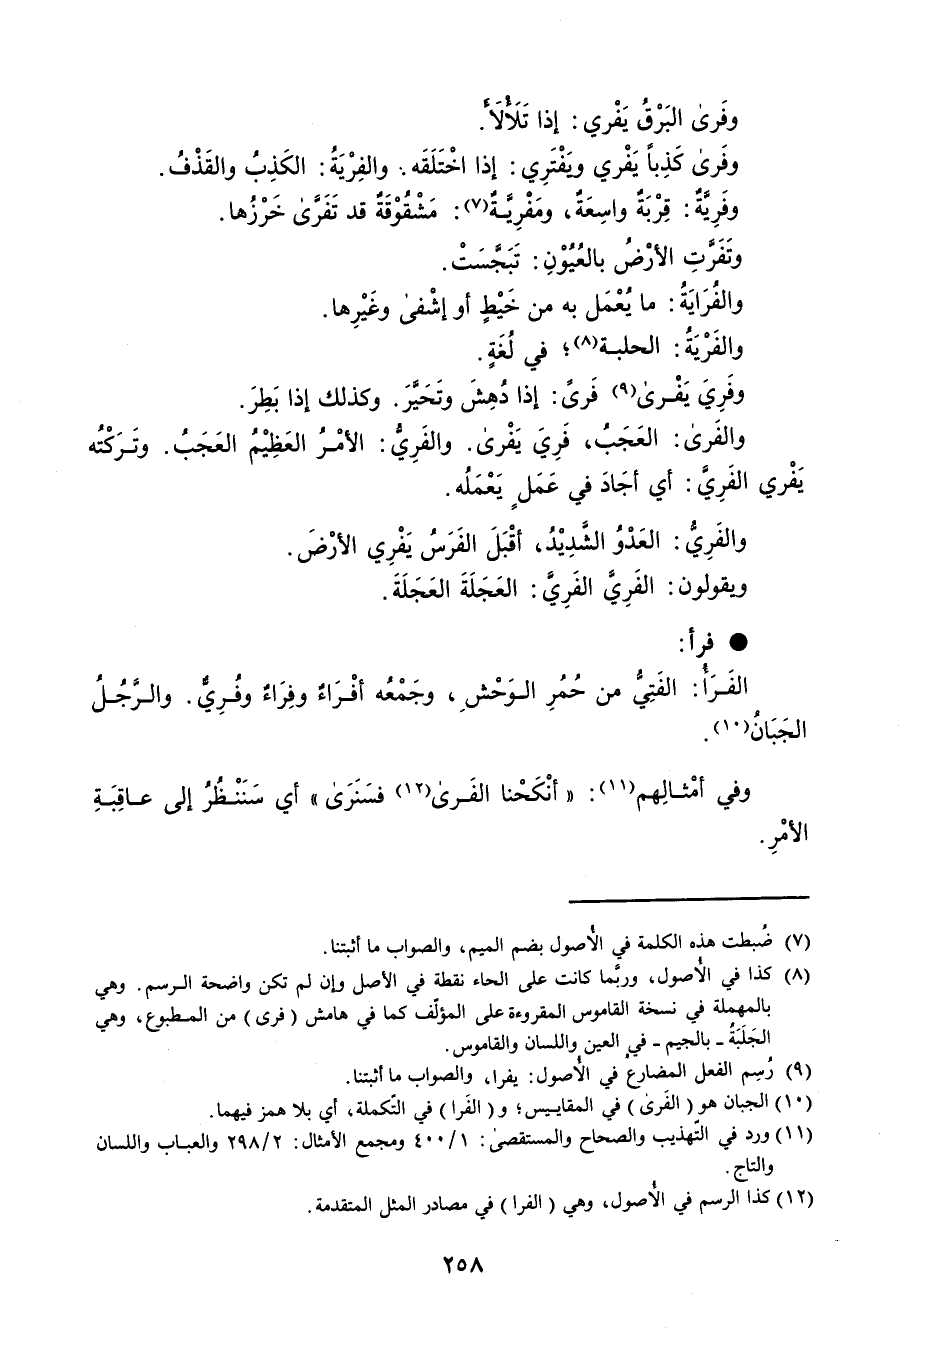 وفَرىٰ البَرْقُ يَفْري: إذا تَلَأْلَأَ.
وفَرىٰ كَذِباً يَفْري ويَفْتَرِي: إذا اخْتَلَقَه. والفِرْيَةُ: الكَذِبُ والقَذْفُ.
وفَرِيَّةٌ: قِرْبَةٌ واسِعَةٌ، ومَفْرِيَّـةٌ(٧): مَشْقُوْقَةٌ قد تَفَرَّىٰ خَرْزُها.
وتَفَرَّتِ الأرْضُ بالعُيُوْنِ: تَبَجَّسَتْ.
والفُرَايَةُ: ما يُعْمَل به من خَيْطٍ أو إشْفىٰ وغَيْرِها.
والفَرْيَةُ: الحلبـة(٨)؛ في لُغَةٍ.
وفَرِيَ يَفْـرىٰ(٩) فَرىً: إذا دُهِشَ وتَحَيَّرَ. وكذلك إذا بَطِرَ.
والفَرىٰ: العَجَبُ، فَرِيَ يَفْرىٰ. والفَرِيُّ: الأمْـرُ العَظِيْمُ العَجَبُ. وتَـرَكْتُه
يَفْري الفَرِيَّ: أي أجَادَ في عَمَلٍ يَعْمَلُه.
والفَرِيُّ: العَدْوُ الشَّدِيْدُ، أقْبَلَ الفَرَسُ يَفْرِي الأرْضَ.
ويقولون: الفَرِيَّ الفَرِيَّ: العَجَلَةَ العَجَلَةَ.
● فرأ:
الفَـرَأُ: الفَتِيُّ من حُمُرِ الـوَحْشِ، وجَمْعُه أفْـرَاءٌ وفِرَاءٌ وفُـرِيٌّ. والـرَّجُـلُ
الجَبَانُ(١٠).
وفي أمْثـالِهم(١١): «أنْكَحْنا الفَـرىٰ(١٢) فسَنَرَىٰ» أي سَنَنْـظُرُ إلى عـاقِبَـةِ
الأمْرِ.
(٧) ضُبطت هذه الكلمة في الأُصول بضم الميم، والصواب ما أثبتنا.
(٨) كذا في الأُصول، وربَّما كانت على الحاء نقطة في الأصل وإن لم تكن واضحة الـرسم. وهي
بالمهملة في نسخة القاموس المقروءة على المؤلّف كما في هامش (فرى) من المـطبوع، وهي
الجَلَبَةُ - بالجيم - في العين واللسان والقاموس.
(٩) رُسِم الفعل المضارع في الأُصول: يفرا، والصواب ما أثبتنا.
(١٠) الجبان هو (الفَرىٰ) في المقاييس؛ و(الفَرا) في التّكملة، أي بلا همز فيهما.
(١١) ورد في التّهذيب والصحاح والمستقصىٰ: ٤٠٠/١ ومجمع الأمثال: ٢٩٨/٢ والعبـاب واللسان
والتاج.
(١٢) كذا الرسم في الأُصول، وهي (الفرا) في مصادر المثل المتقدمة.
٢٥٨